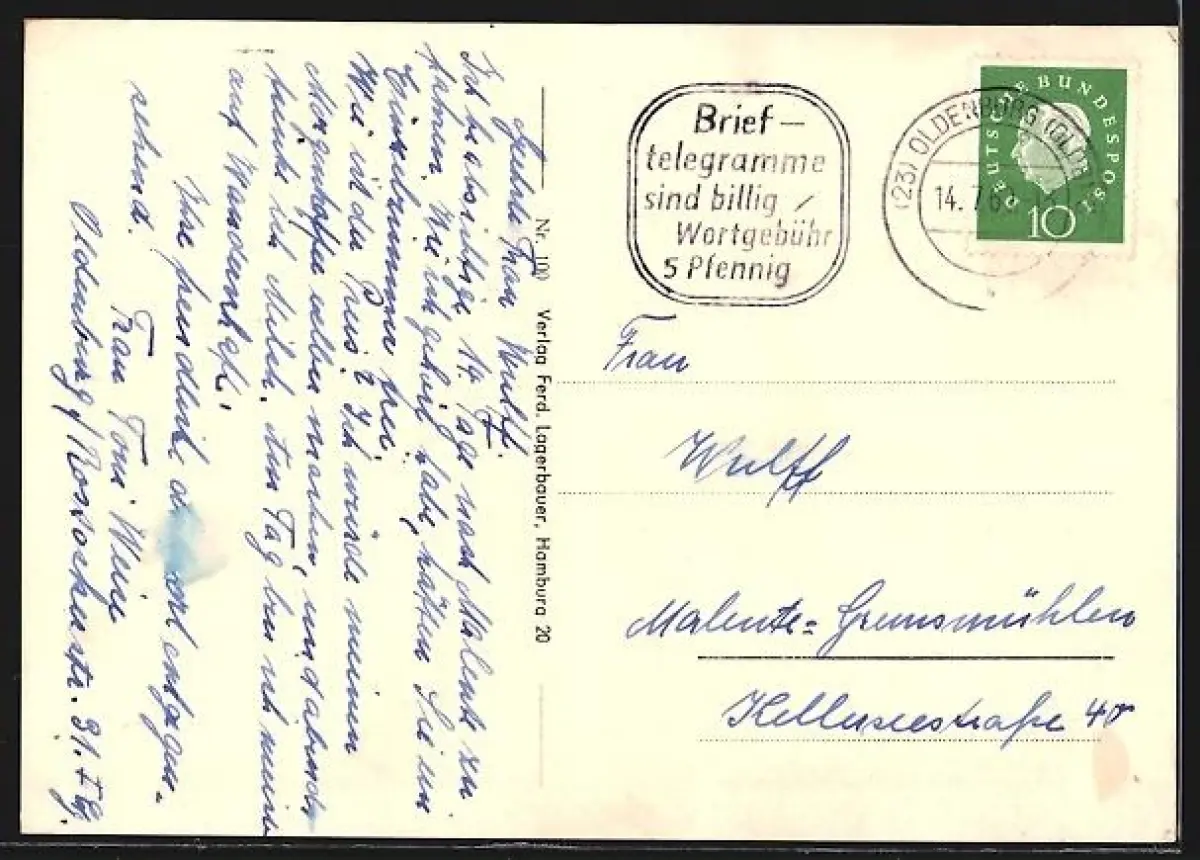 Geehrte Frau Wulff.
Ich beabsichtige 14 Tage nach Malente zu
fahren. Wie ich gehört habe, hätten Sie ein
Einzelzimmer frei.
Wie ist der Preis? Ich würde meinen
Morgenkaffee selber machen, und abends
trinke ich Milch. den Tag bin ich meist
auf Wanderschaft.
Ihre freundlich entgegen-
sehend.
Frau Toni
Oldenburg / Rostockerstr. 31. I
Nr. 100 Verlag Ferd. Lagerbauer, Hamburg 20
Brief—
telegramme
sind billig /
Wortgebühr
5 Pfennig
(23) OLDENBURG (OLDB)
14. 7. 6
DEUTSCHE BUNDESPOST
10
Frau
Wulff
Malente-Gremsmühlen
Kellerseestraße 40